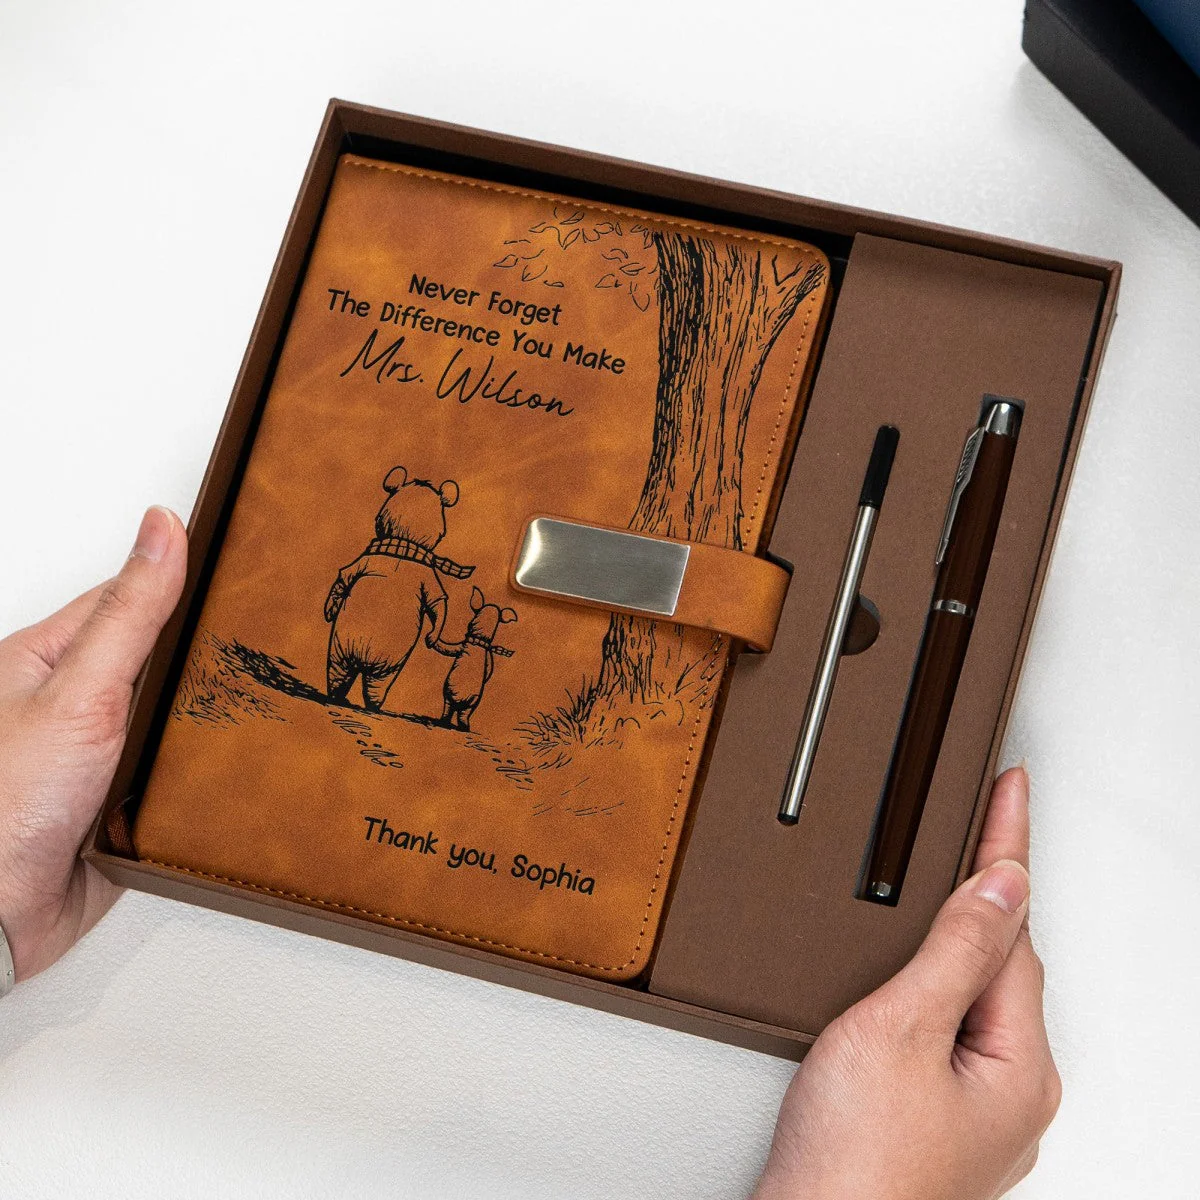 Never Forget
The Difference You Make
Mrs. Wilson
Thank you, Sophia